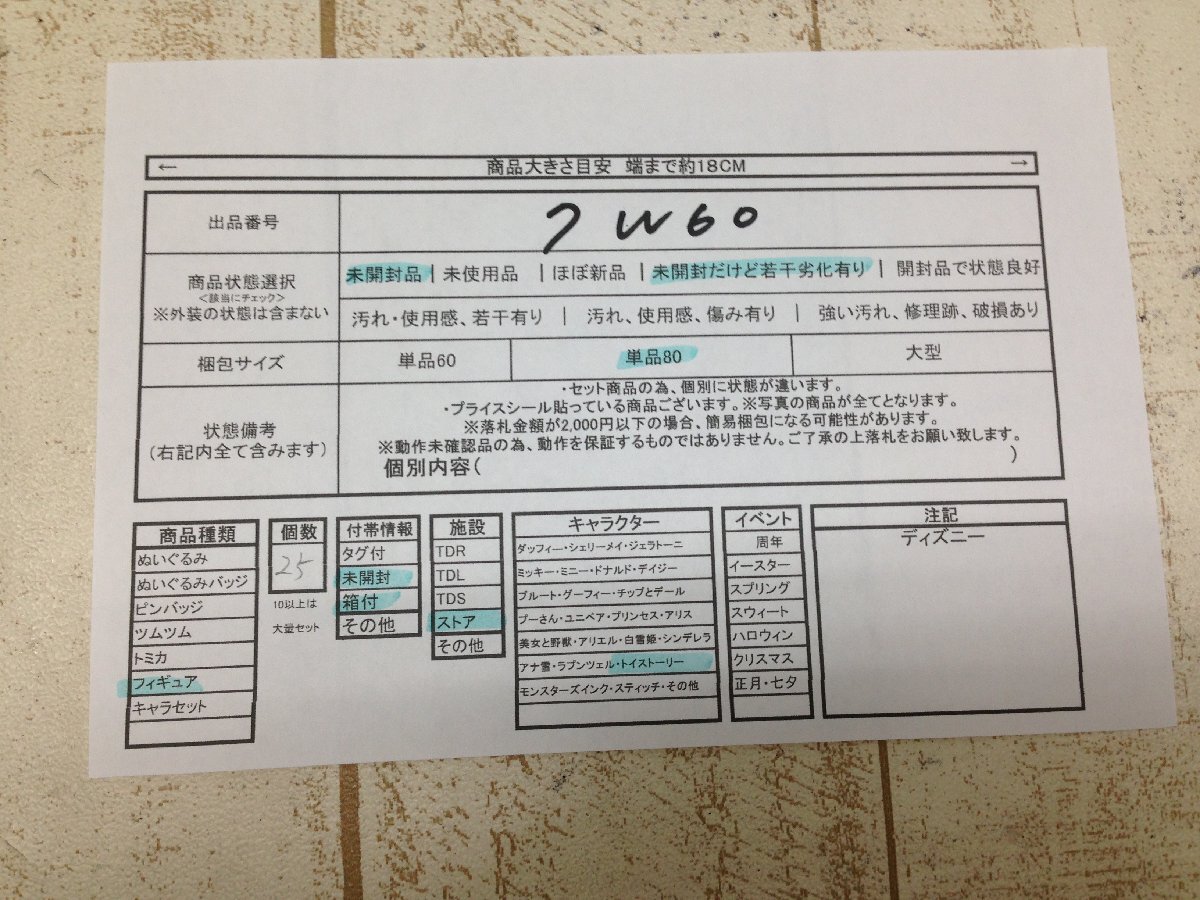 ← 商品大きさ目安 端まで約18CM →
出品番号 7W60
商品状態選択
<該当にチェック>
※外装の状態は含まない
未開封品 | 未使用品 | ほぼ新品 | 未開封だけど若干劣化有り | 開封品で状態良好
汚れ・使用感、若干有り | 汚れ、使用感、傷み有り | 強い汚れ、修理跡、破損あり
梱包サイズ 単品60 単品80 大型
状態備考
(右記内全て含みます)
・セット商品の為、個別に状態が違います。
・プライスシール貼っている商品ございます。※写真の商品が全てとなります。
※落札金額が2,000円以下の場合、簡易梱包になる可能性があります。
※動作未確認品の為、動作を保証するものではありません。ご了承の上落札をお願い致します。
個別内容( )
商品種類
ぬいぐるみ
ぬいぐるみバッジ
ピンバッジ
ツムツム
トミカ
フィギュア
キャラセット
個数
25
10以上は
大量セット
付帯情報
タグ付
未開封
箱付
その他
施設
TDR
TDL
TDS
ストア
その他
キャラクター
ダッフィー・シェリーメイ・ジェラトーニ
ミッキー・ミニー・ドナルド・デイジー
プルート・グーフィー・チップとデール
プーさん・ユニベア・プリンセス・アリス
美女と野獣・アリエル・白雪姫・シンデレラ
アナ雪・ラプンツェル・トイストーリー
モンスターズインク・スティッチ・その他
イベント
周年
イースター
スプリング
スウィート
ハロウィン
クリスマス
正月・七夕
注記
ディズニー